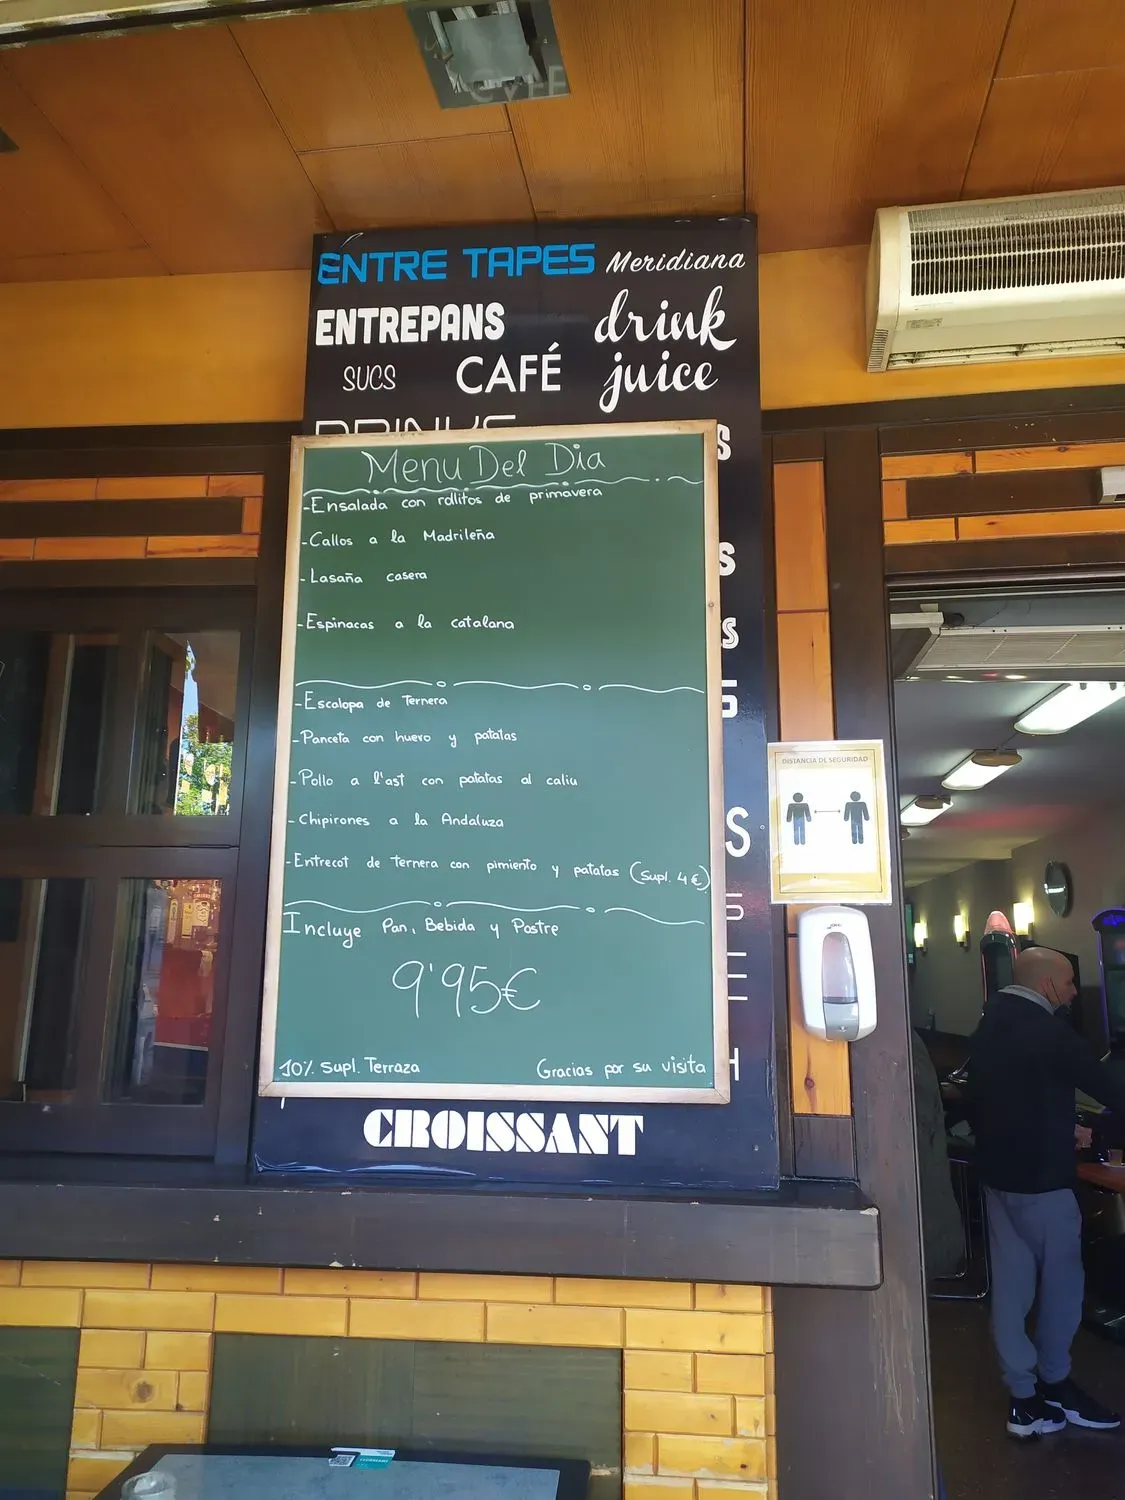 ENTRE TAPES Meridiana
ENTREPANS drink
SUCS CAFÉ juice
DRINKS
Menu Del Dia
-Ensalada con rollitos de primavera
-Callos a la Madrileña
-Lasaña casera
-Espinacas a la catalana
-Escalopa de Ternera
-Panceta con huevo y patatas
-Pollo a l'ast con patatas al caliu
-Chipirones a la Andaluza
-Entrecot de ternera con pimiento y patatas (Supl. 4€)
Incluye Pan, Bebida y Postre
9'95€
10% Supl. Terraza Gracias por su visita
CROISSANT
DISTANCIA DE SEGURIDAD